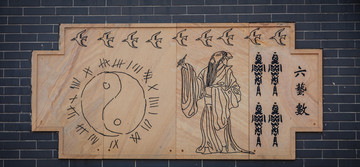 六藝數